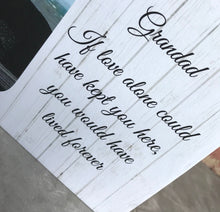 Grandad
If love alone could
have kept you here,
you would have
lived forever